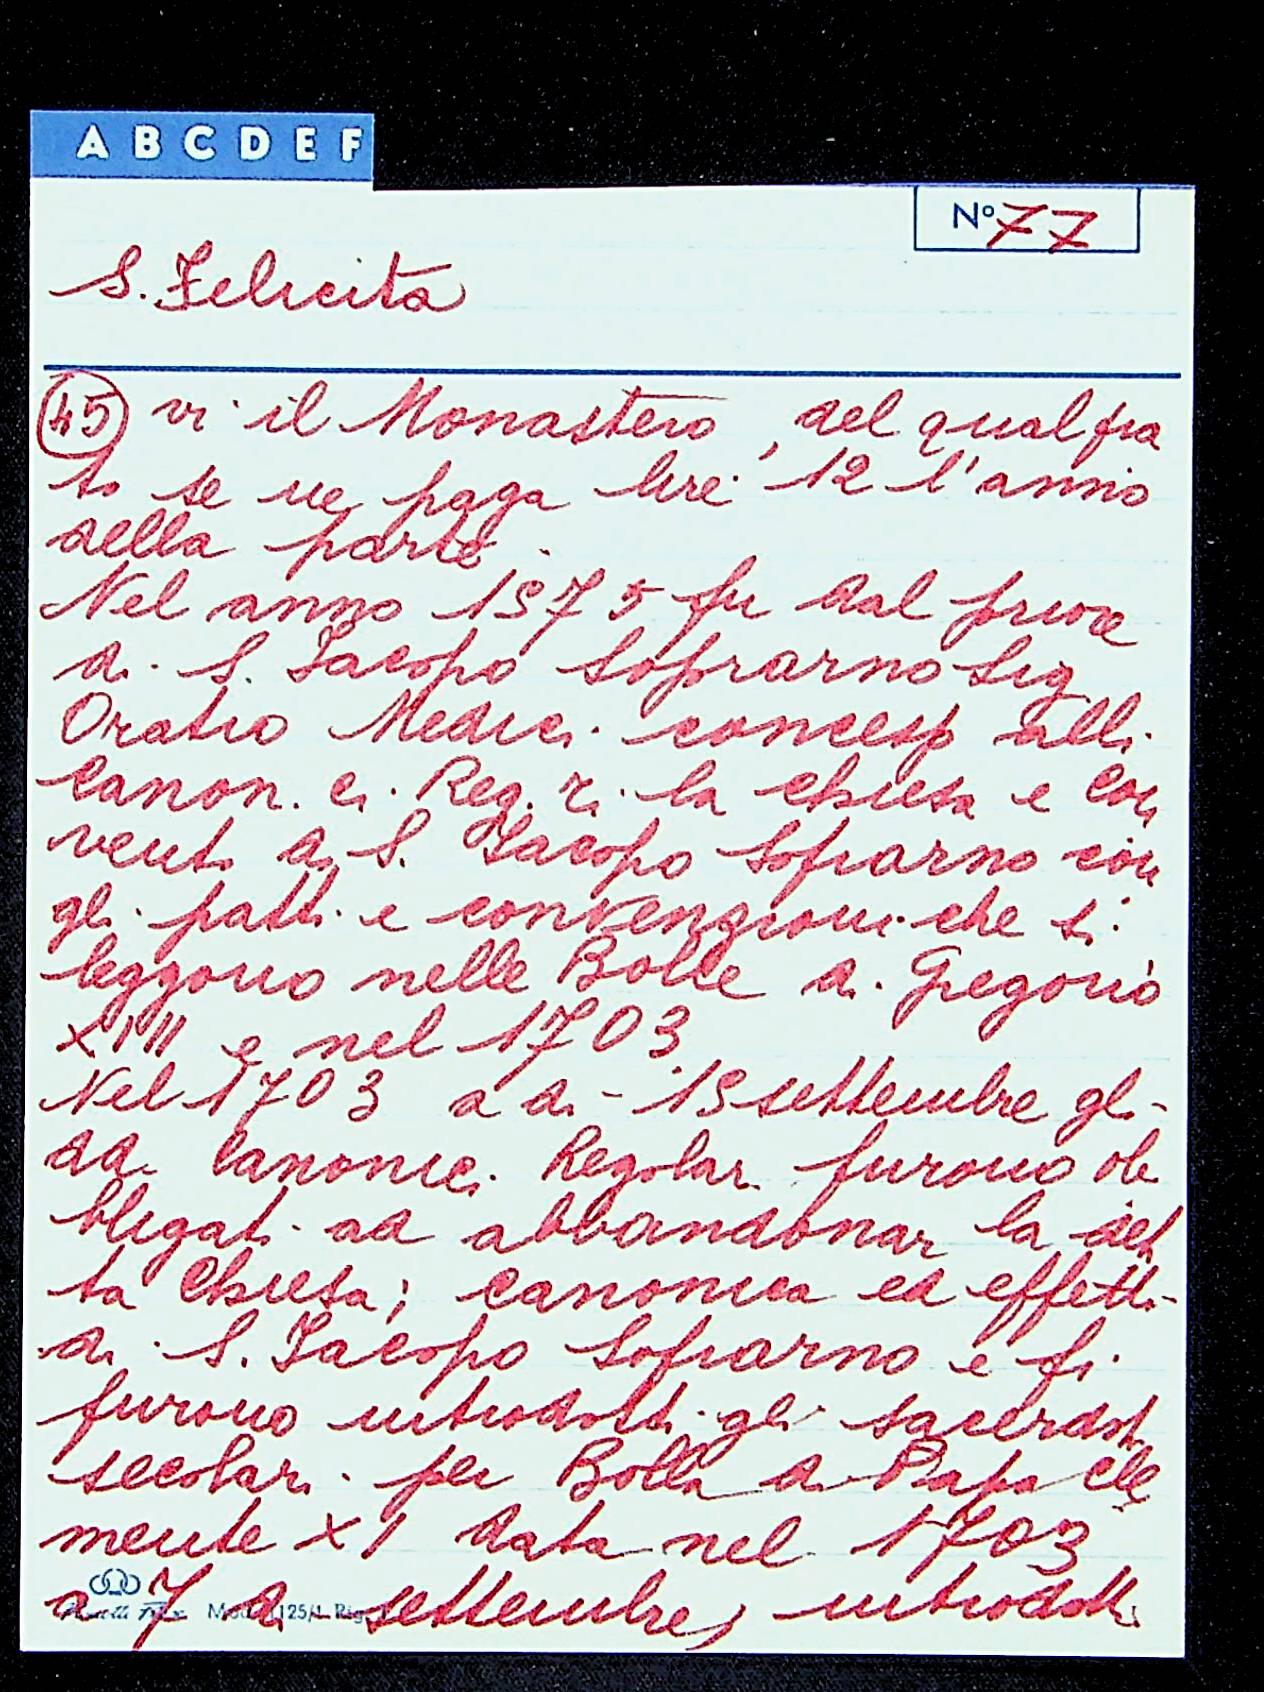 A B C D E F
Nº 77
S. Felicita
45 vi il Monastero, del qual fra
to se ne paga lire 12 l'anno
della parte.
Nel anno 1575 fu dal priore
di S. Jacopo Soprarno Sig
Oratio Medici concesso alli
Canon. ci. Reg. ri. la chiesa e Con
venti di S. Jacopo Soprarno con
gli patti e convenzioni che si
leggono nelle Bolle di Gregorio
XIII e nel 1703
Nel 1703 a di - 15 settembre gl-
dd. Canonici Regolari furono ob
bligati ad abbandonar la det
ta Chiesa; canonica ed effetti
di S. Jacopo Soprarno e fi
furono introdotti gli sacerdoti
secolari per Bolla di Papa Cle
mente XI data nel 1703
a 7 di settembre, introdotti
Mod. 125/1 Rig.